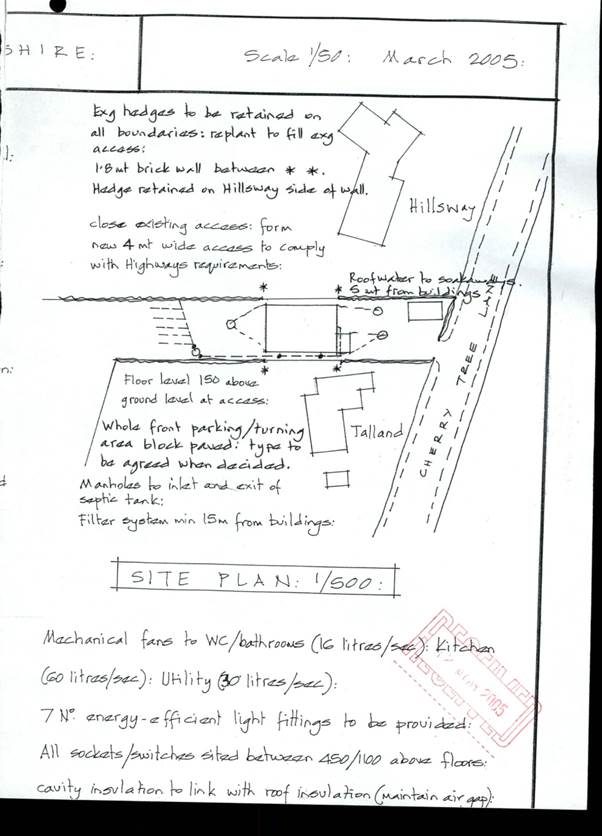 SHIRE:
Scale 1/50: March 2005:
Exg hedges to be retained on
all boundaries: replant to fill exg
access:
1·8mt brick wall between * *.
Hedge retained on Hillsway side of wall.
Hillsway
close existing access: form
new 4 mt wide access to comply
with Highways requirements:
Roofwater to soakaways.
* * 5 mt from buildings
CHERRY TREE LANE
* *
Floor level 150 above
ground level at access:
Whole front parking/turning
area block paved: type to
be agreed when decided.
Talland
Manholes to inlet and exit of
septic tank:
Filter system min 15m from buildings:
SITE PLAN: 1/500:
Mechanical fans to WC/bathrooms (16 litres/sec): Kitchen
(60 litres/sec): Utility (30 litres/sec):
RECEIVED
2005
7 No. energy-efficient light fittings to be provided:
All sockets/switches sited between 450/1100 above floors:
cavity insulation to link with roof insulation (maintain air gap):